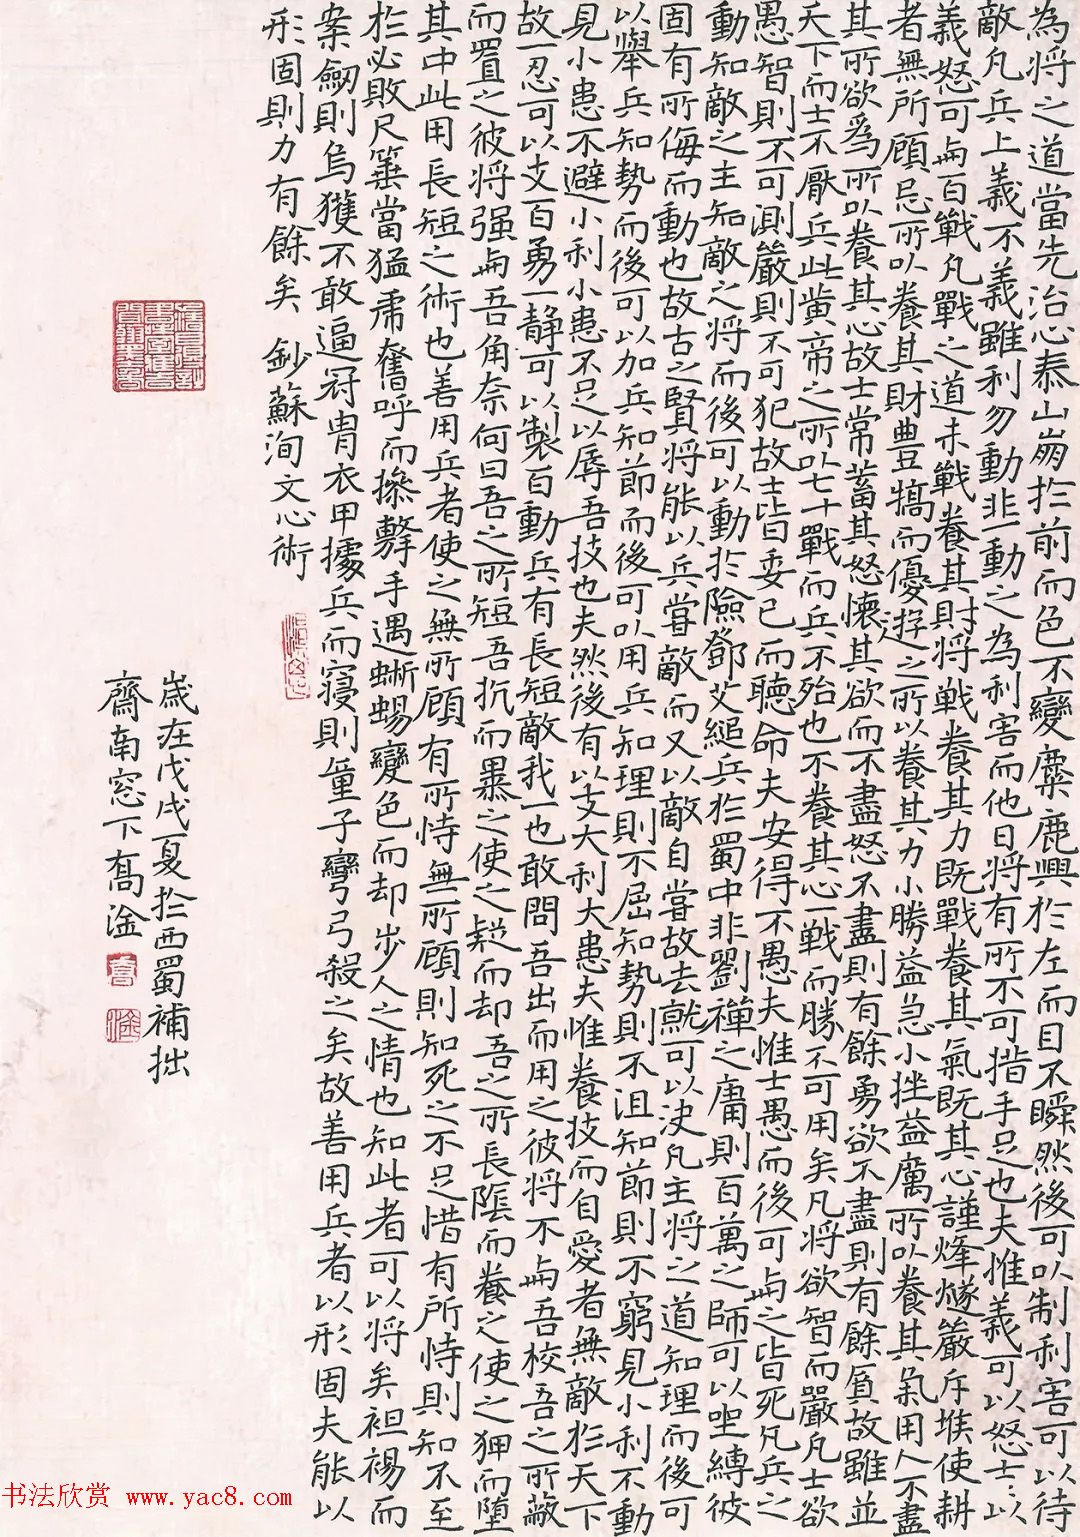 為將之道當先治心泰山崩扵前而色不變麋鹿興扵左而目不瞬然後可以制利害可以待
敵凡兵上義不義雖利勿動非一動之為利害而他日將有所不可措手足也夫惟義可以怒士士以
義怒可與百戰凡戰之道未戰養其財將戰養其力既戰養其氣既其心謹烽燧嚴斥堠使耕
者無所顧忌所以養其財豊犒而優游之所以養其力小勝益急小挫益厲所以養其氣用人不盡
其所欲為所以養其心故士常蓄其怒懷其欲而不盡怒不盡則有餘勇欲不盡則有餘貪故雖並
天下而士不厭兵此黄帝之所以七十戰而兵不殆也不養其心一戰而勝不可用矣凡將欲智而嚴凡士欲
愚智則不可測嚴則不可犯故士皆委己而聽命夫安得不愚夫惟士愚而後可與之皆死凡兵之
動知敵之主知敵之將而後可以動扵險鄧艾縋兵扵蜀中非劉禪之庸則百萬之師可以坐縛彼
固有所侮而動也故古之賢將能以兵嘗敵而又以敵自嘗故去就可以决凡主將之道知理而後可
以舉兵知勢而後可以加兵知節而後可以用兵知理則不屈知勢則不沮知節則不窮見小利不動
見小患不避小利小患不足以辱吾技也夫然後有以支大利大患夫惟養技而自愛者無敵扵天下
故一忍可以支百勇一静可以製百動兵有長短敵我一也敢問吾出而用之彼將不與吾校吾之所蔽
而置之彼將强與吾角奈何曰吾之所短吾抗而暴之使之疑而却吾之所長隂而養之使之狎而墮
其中此用長短之術也善用兵者使之無所顧有所恃無所顧則知死之不足惜有所恃則知不至
扵必敗尺箠當猛虎奮呼而操擊手遇蜥蜴變色而却步人之情也知此者可以將矣袒裼而
案劒則烏獲不敢逼冠胄衣甲據兵而寢則童子彎弓殺之矣故善用兵者以形固夫能以
形固則力有餘矣 鈔蘇洵文心術
歲在戊戌夏扵西蜀補拙
齋南窓下髙淦
书法欣赏 www.yac8.com